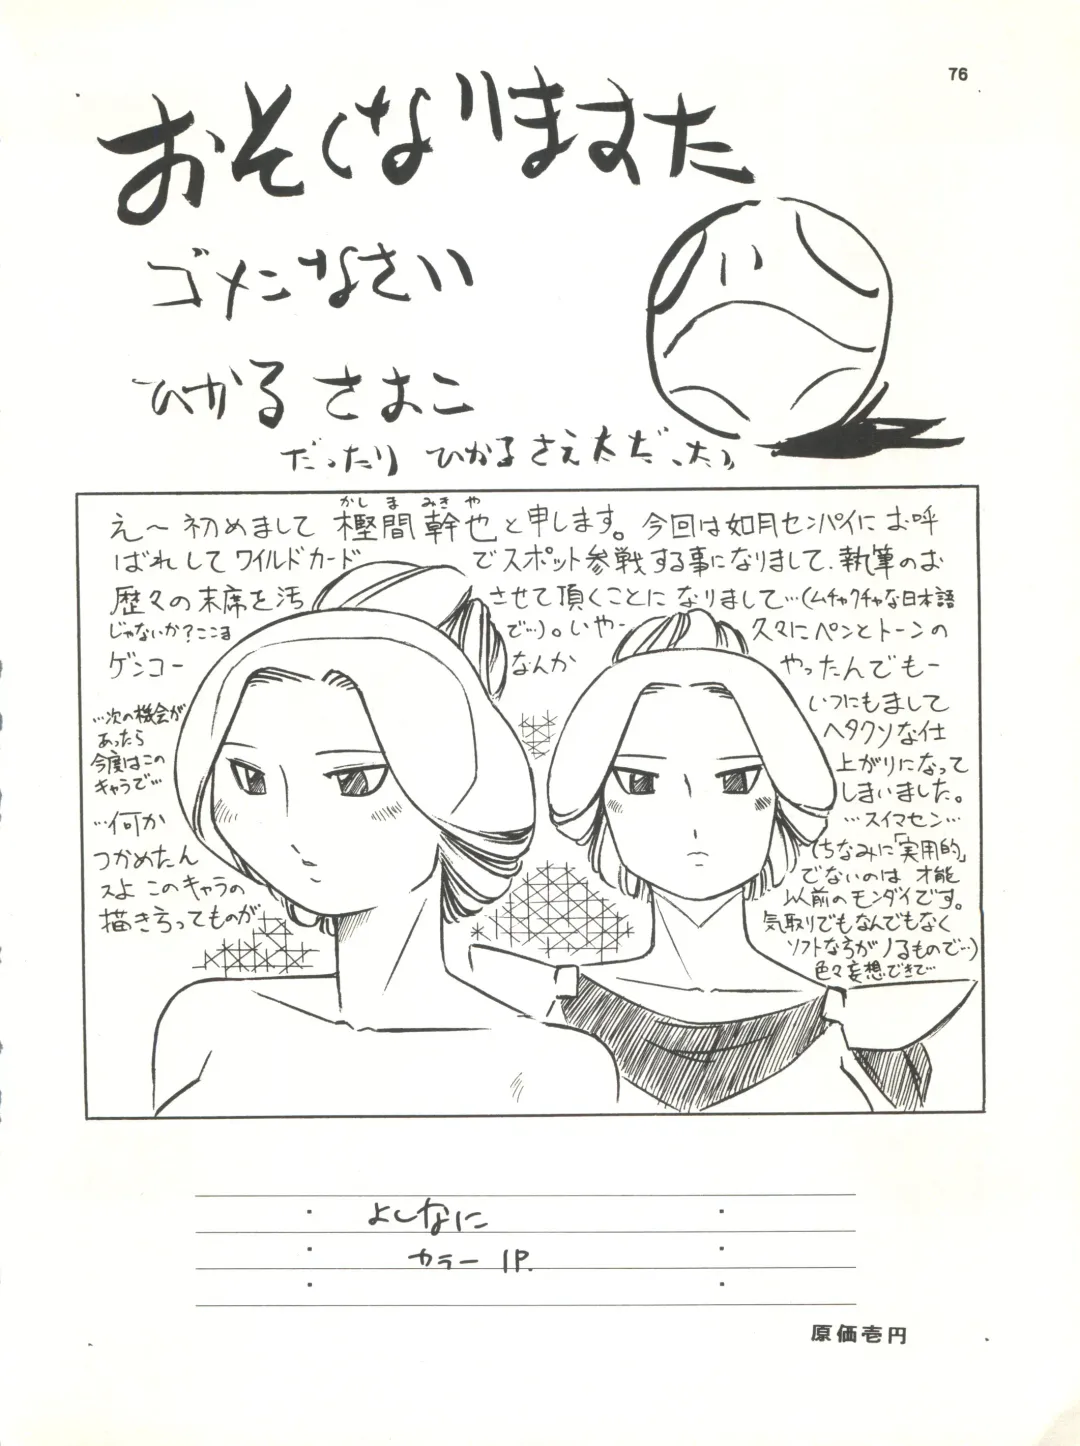 76
おそくなりますた
ゴメンなさい
ひかるさおこ
だったり ひかるさえ太だ、たり
かしま みきや
え〜初めまして 樫間幹也と申します。今回は如月センパイにお呼
ばれしてワイルドカードでスポット参戦する事になりまして、執筆のお
歴々の末席を汚させて頂くことになりまして…(ムチャクチャな日本語
じゃないか?ここまで…)。いやー久々にペンとトーンの
ゲンコーなんかやったんでもー
いつにもまして
ヘタクソな仕
上がりになって
しまいました。
…スイマセン…
(ちなみに「実用的」
でないのは才能
以前のモンダイです。
気取りでもなんでもなく
ソフトな方がノるもので…)
色々妄想できて…
…次の機会が
あったら
今度はこの
キャラで…
…何か
つかめたん
スよ このキャラの
描き方ってものが
よしなに
カラー 1P.
原価壱円